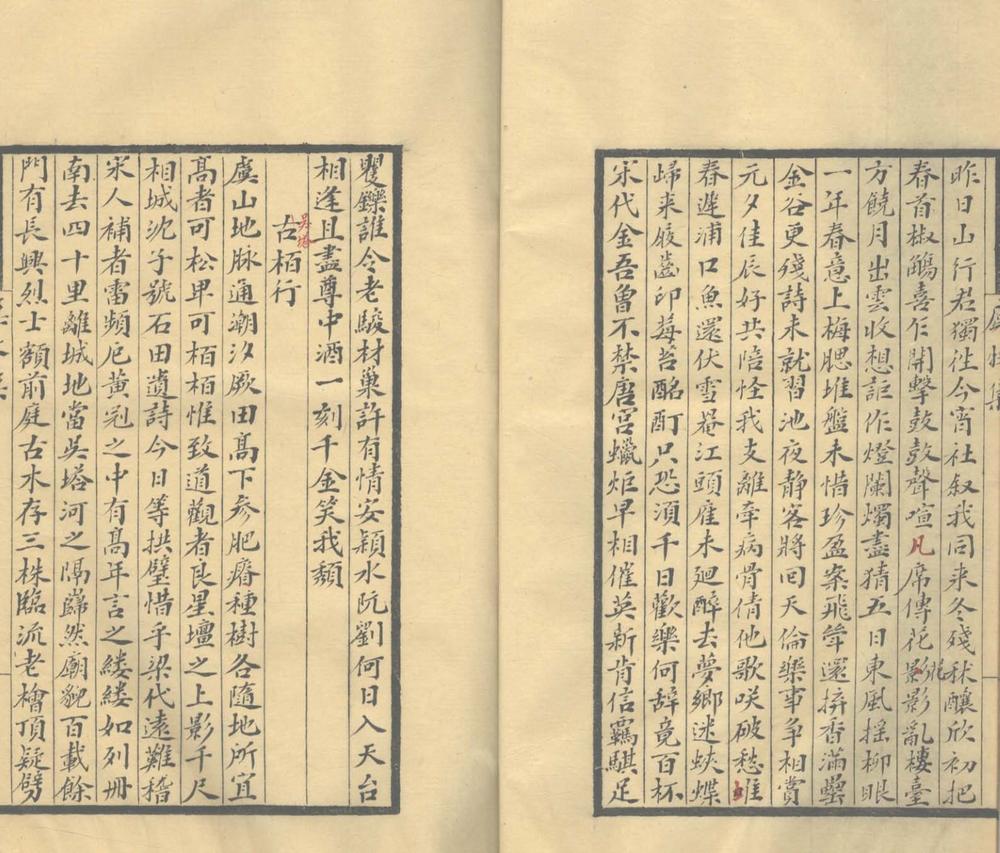 昨日山行君獨徃今宵社叙我同来冬殘秫釀欣初把
春首椒觴喜乍開擊鼓鼓聲喧凡席傳花影影亂樓臺
花
方饒月出雲收想詎作燈闌燭盡猜五日東風揺柳眼
一年春意上梅腮堆盤未惜珍盈案飛斝還拚香滿罍
金谷更殘詩未就習池夜静客將回天倫樂事争相賞
元夕佳辰好共陪怪我支離牵病骨倩他歌咲破愁堆
春遲浦口魚還伏雪菴江頭雁未廻醉去夢鄉迷蛺蝶
歸来屐齒印莓苔酩酊只恐湏千日歡樂何辞竟百杯
宋代金吾曽不禁唐宫蠟炬早相催英新肯信覊騏足
矍鑠誰令老駿材巢許有情安潁水阮劉何日入天台
相逢且盡尊中酒一刻千金笑我頽
古栢行
吴塔
虞山地脉通潮汐厥田髙下参肥瘠種樹各隨地所宜
髙者可松卑可栢栢惟致道觀者良星壇之上影千尺
相城沈子號石田遺詩今日等拱璧惜乎梁代遠難稽
宋人補者雷頻厄黄冠之中有髙年言之縷縷如列冊
南去四十里離城地當吴塔河之隔巋然廟貌百載餘
門有長興烈士額前庭古木存三株臨流老檜頂疑劈